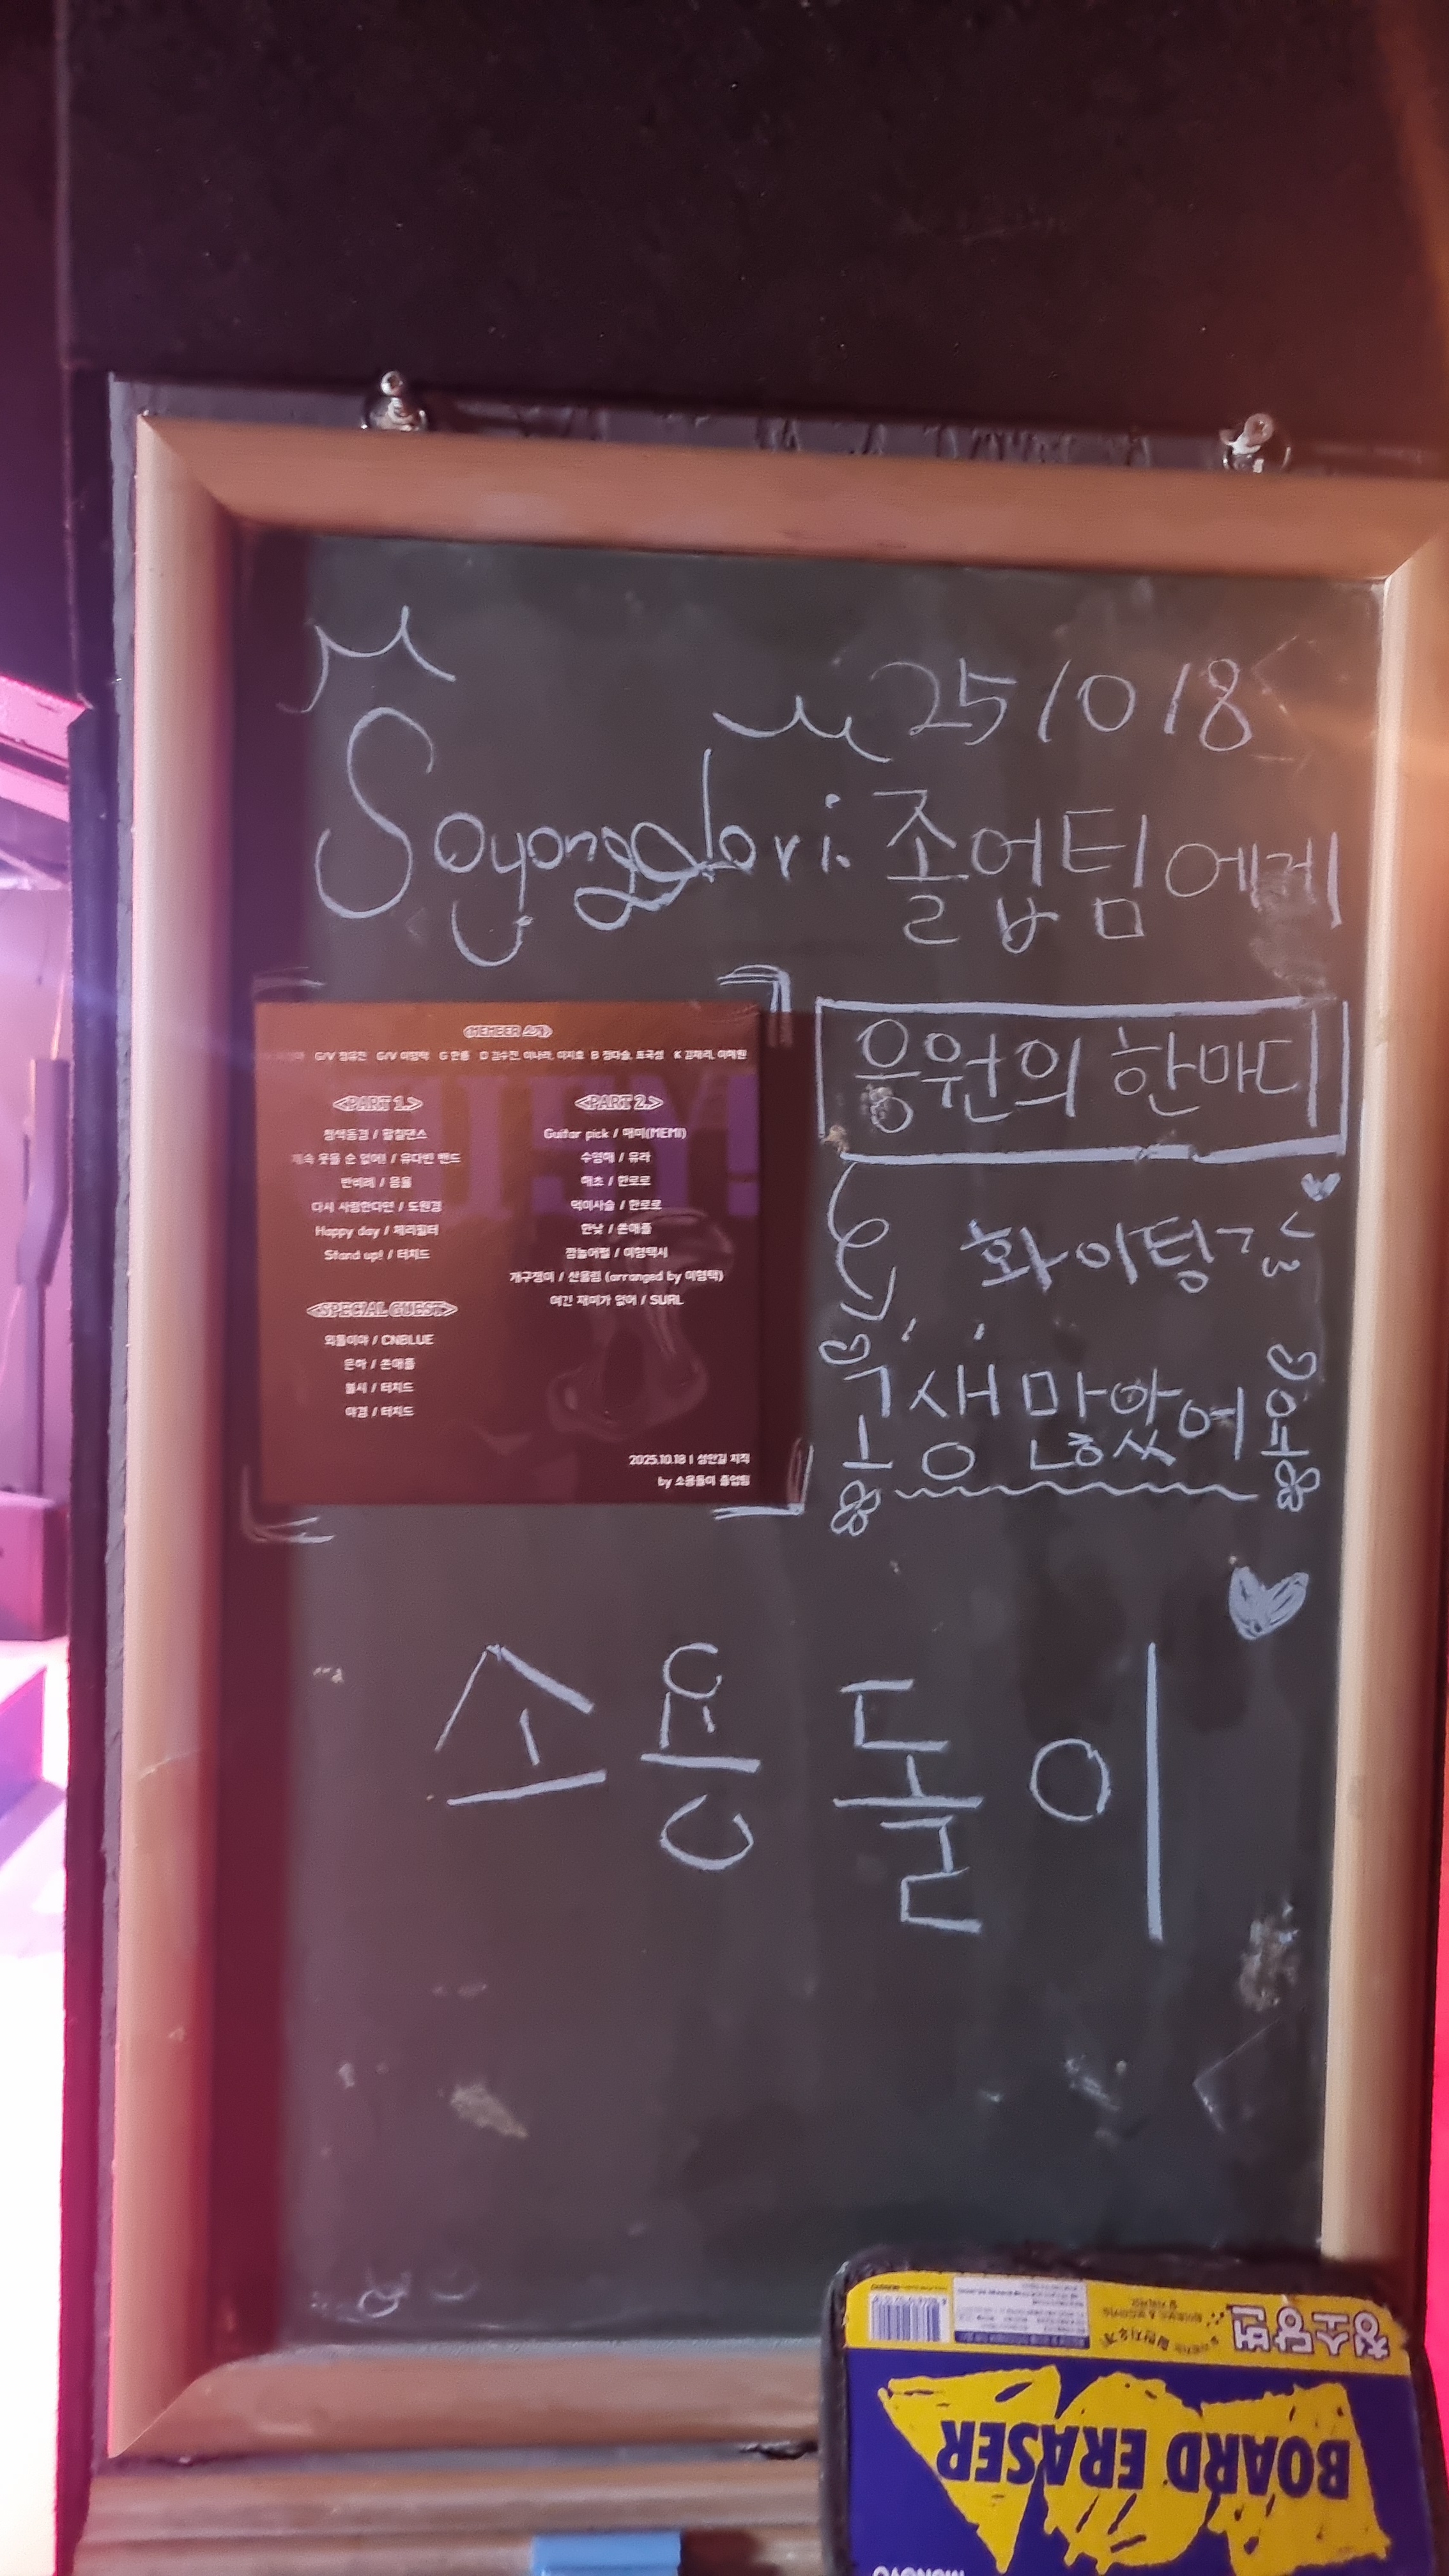 251018
Soyongdori. 졸업팀에게
응원의 한마디
화이팅
고생 많았어용
소용돌이
<MEMBER 소개>
G/V 정유진 G/V 이형택 G 한룡 D 김수진, 이나라, 이지호 B 정다솔, 표국성 K 김채리, 이혜원
<PART 1.>
청색동경 / 팔칠댄스
계속 웃을 순 없어! / 유다빈 밴드
반비례 / 음율
다시 사랑한다면 / 도원경
Happy day / 체리필터
Stand up! / 터치드
<SPECIAL GUEST>
외톨이야 / CNBLUE
은하 / 쏜애플
불시 / 터치드
야경 / 터치드
<PART 2.>
Guitar pick / 매미(MEMI)
수영해 / 유라
해초 / 한로로
먹이사슬 / 한로로
한낮 / 쏜애플
깜놀어쩔 / 이형택시
개구쟁이 / 산울림 (arranged by 이형택)
여긴 재미가 없어 / SURL
2025.10.18 | 성안길 지직
by 소용돌이 졸업팀
청소당번
BOARD ERASER